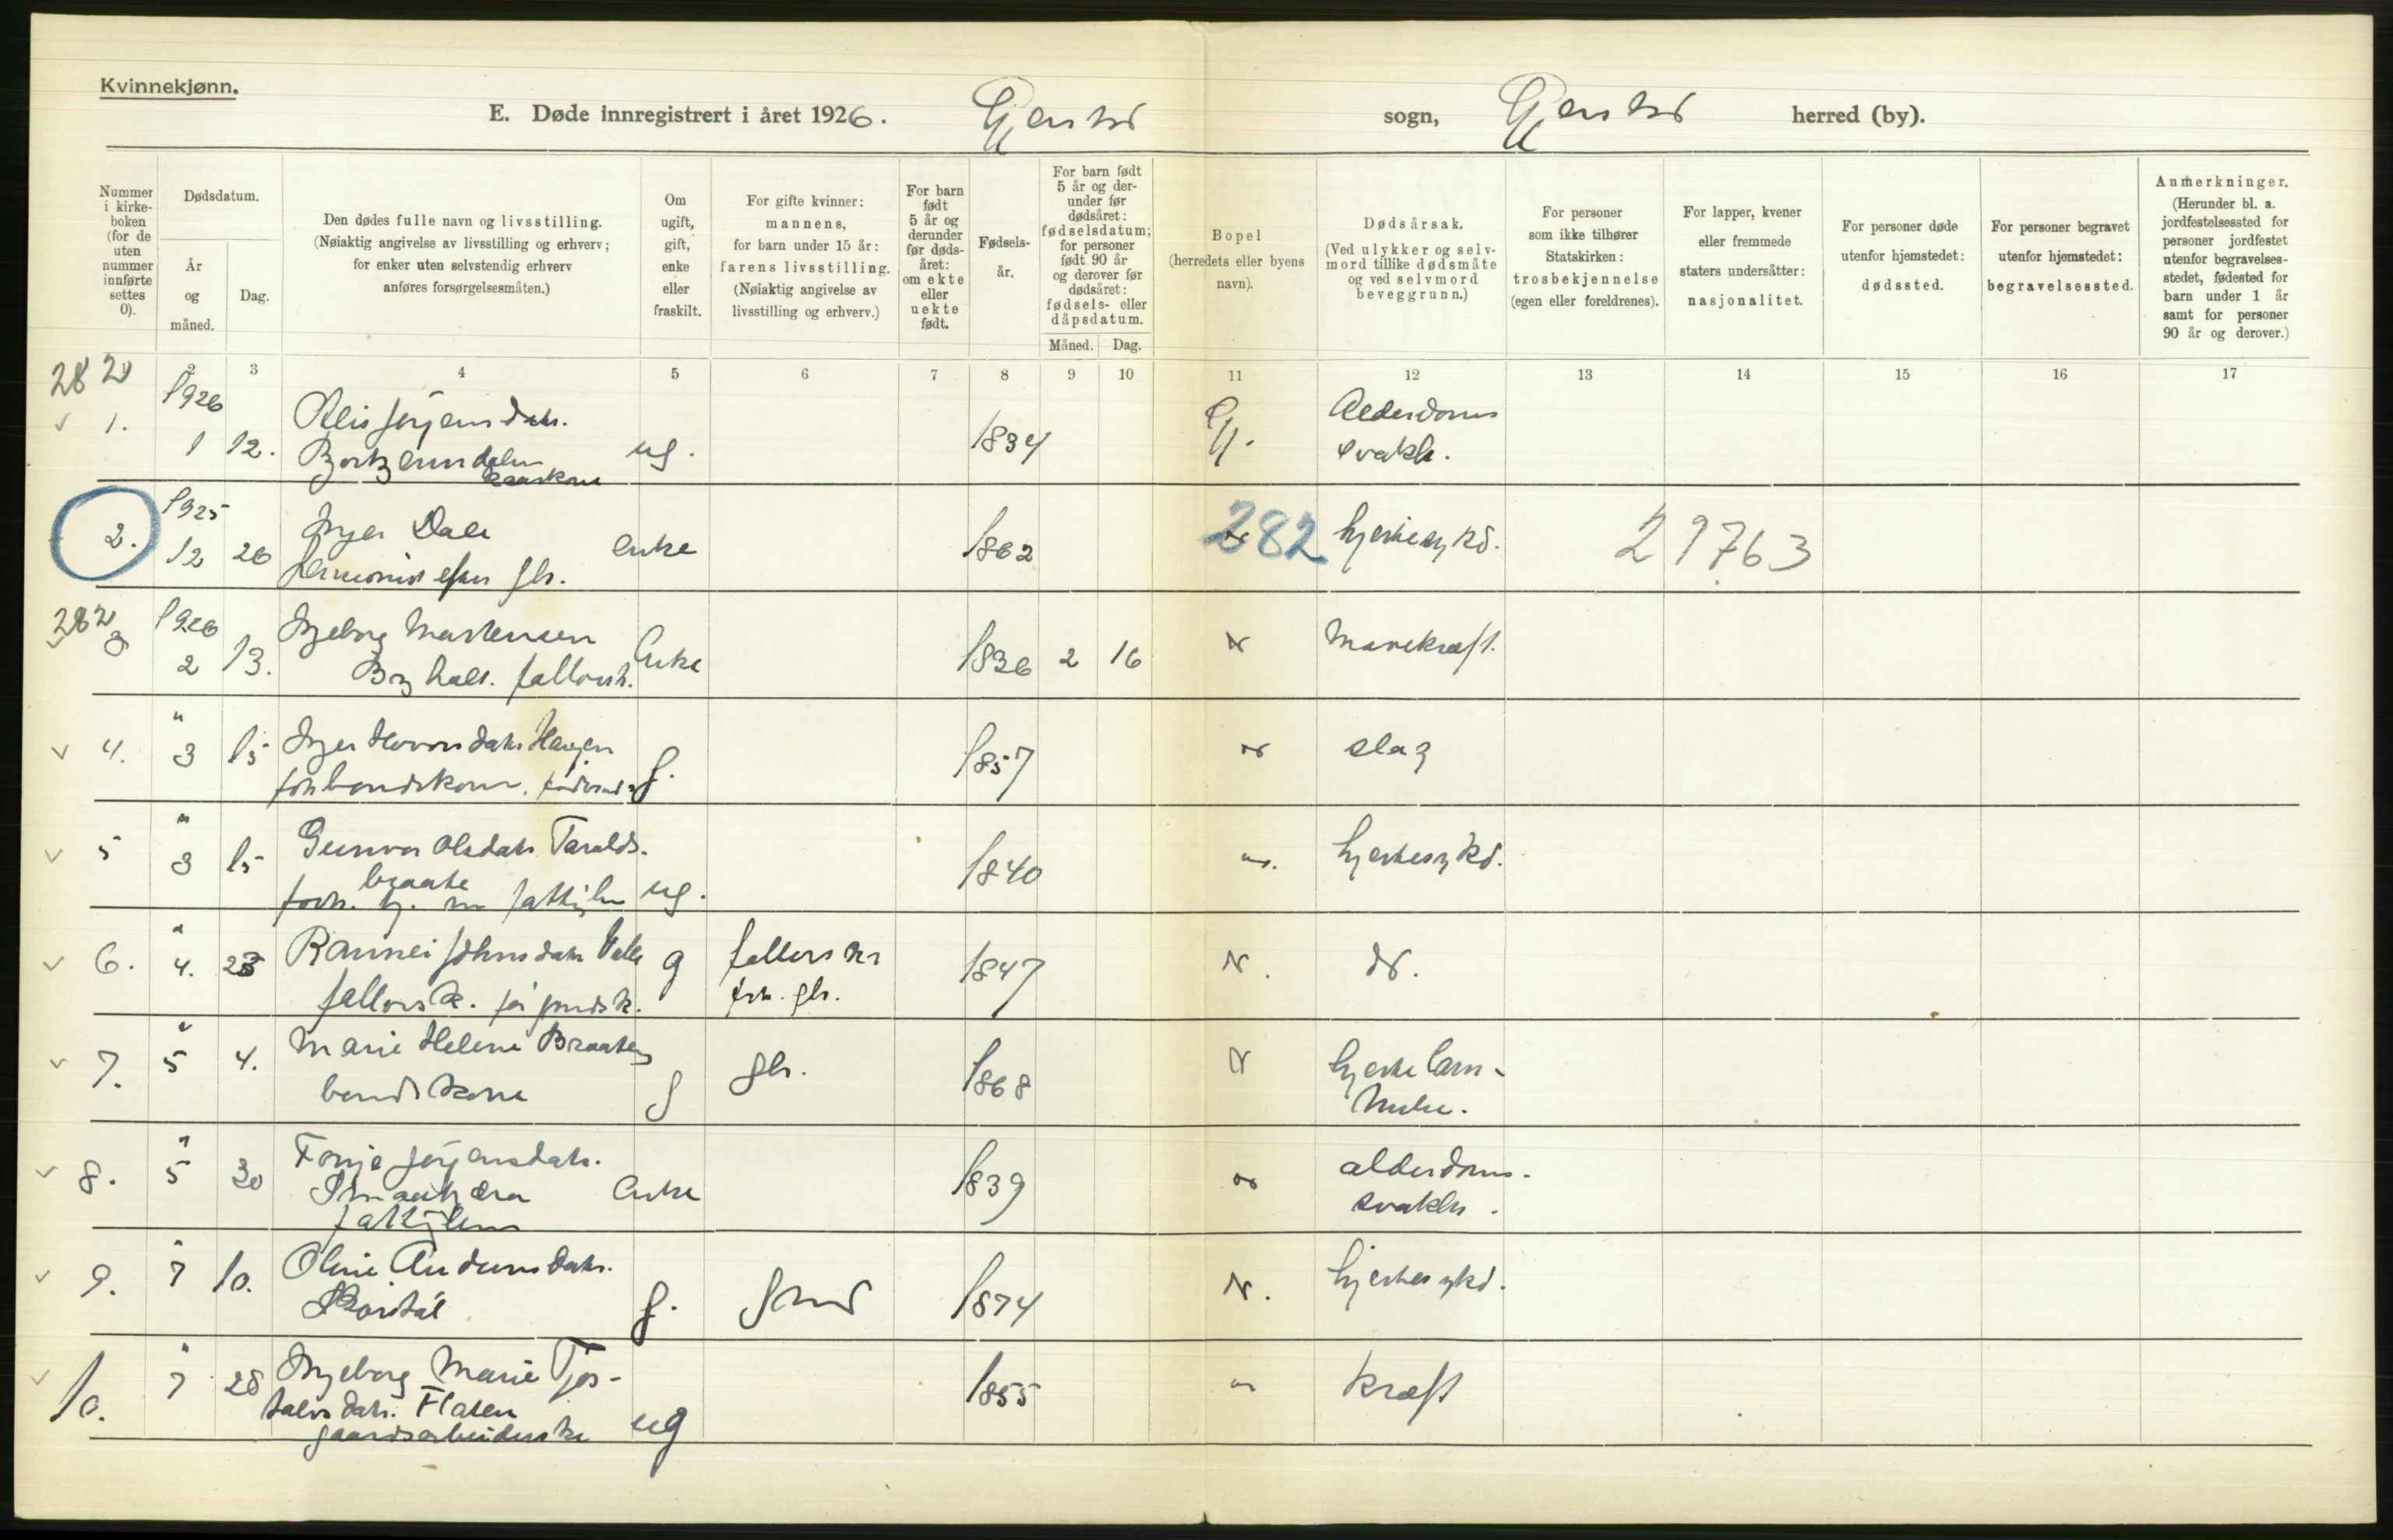 Kvinnekjønn.
E. Døde innregistrert i året 1926. Gjerstad sogn, Gjerstad herred (by).
Nummer i kirkeboken (for de uten nummer innførte settes 0).
Dødsdatum.
År og måned.
Dag.
Den dødes fulle navn og livsstilling.
(Nøiaktig angivelse av livsstilling og erhverv;
for enker uten selvstendig erhverv
anføres forsørgelsesmåten.)
Om ugift, gift, enke eller fraskilt.
For gifte kvinner:
mannens,
for barn under 15 år:
farens livsstilling.
(Nøiaktig angivelse av
livsstilling og erhverv.)
For barn født 5 år og derunder før dødsåret: om ekte eller uekte født.
Fødselsår.
For barn født 5 år og derunder før dødsåret: fødselsdatum; for personer født 90 år og derover før dødsåret: fødsels- eller dåpsdatum.
Måned. Dag.
Bopel
(herredets eller byens
navn).
Dødsårsak.
(Ved ulykker og selvmord tillike dødsmåte og ved selvmord beveggrunn.)
For personer
som ikke tilhører
Statskirken:
trosbekjennelse
(egen eller foreldrenes).
For lapper, kvener
eller fremmede
staters undersåtter:
nasjonalitet.
For personer døde
utenfor hjemstedet:
dødssted.
For personer begravet
utenfor hjemstedet:
begravelsessted.
Anmerkninger.
(Herunder bl. a.
jordfestelsessted for
personer jordfestet
utenfor begravelses-
stedet, fødested for
barn under 1 år
samt for personer
90 år og derover.)
2 3 4 5 6 7 8 9 10 11 12 13 14 15 16 17
282
1. 1926 1 12. Jørgensdatr. ug. 1834 Gj. Alderdoms
svakh.
2. 1925 12 26 Inger Dale enke 1862 282 hjertesykd. 29763
efter gbr.
282
3 1926 2 13. Ingeborg Martensen Enke 1836 2 16 Mavekræft.
4. " 3 15 Inger Haugen g. 1857 slag
5 " 3 15 Gunvor Olsdatr Taralds- 1840 hjertesykd.
braate ug.
6. " 4. 23 Rannei Johnsdatr g 1847
gbr.
7. " 5 4. Marie Helene Braaten g gbr. 1868 hjertelam-
bondekone melse.
8. " 5 30 Tonje Jørgensdatr. Enke 1839 alderdoms-
svakhet.
9. " 7 10. Oline g. 1874 hjertesykd.
10. " 7 28 Ingeborg Marie Tjøs- ug 1855 kræft
talvsdatr. Flaten
gaardsarbeiderske